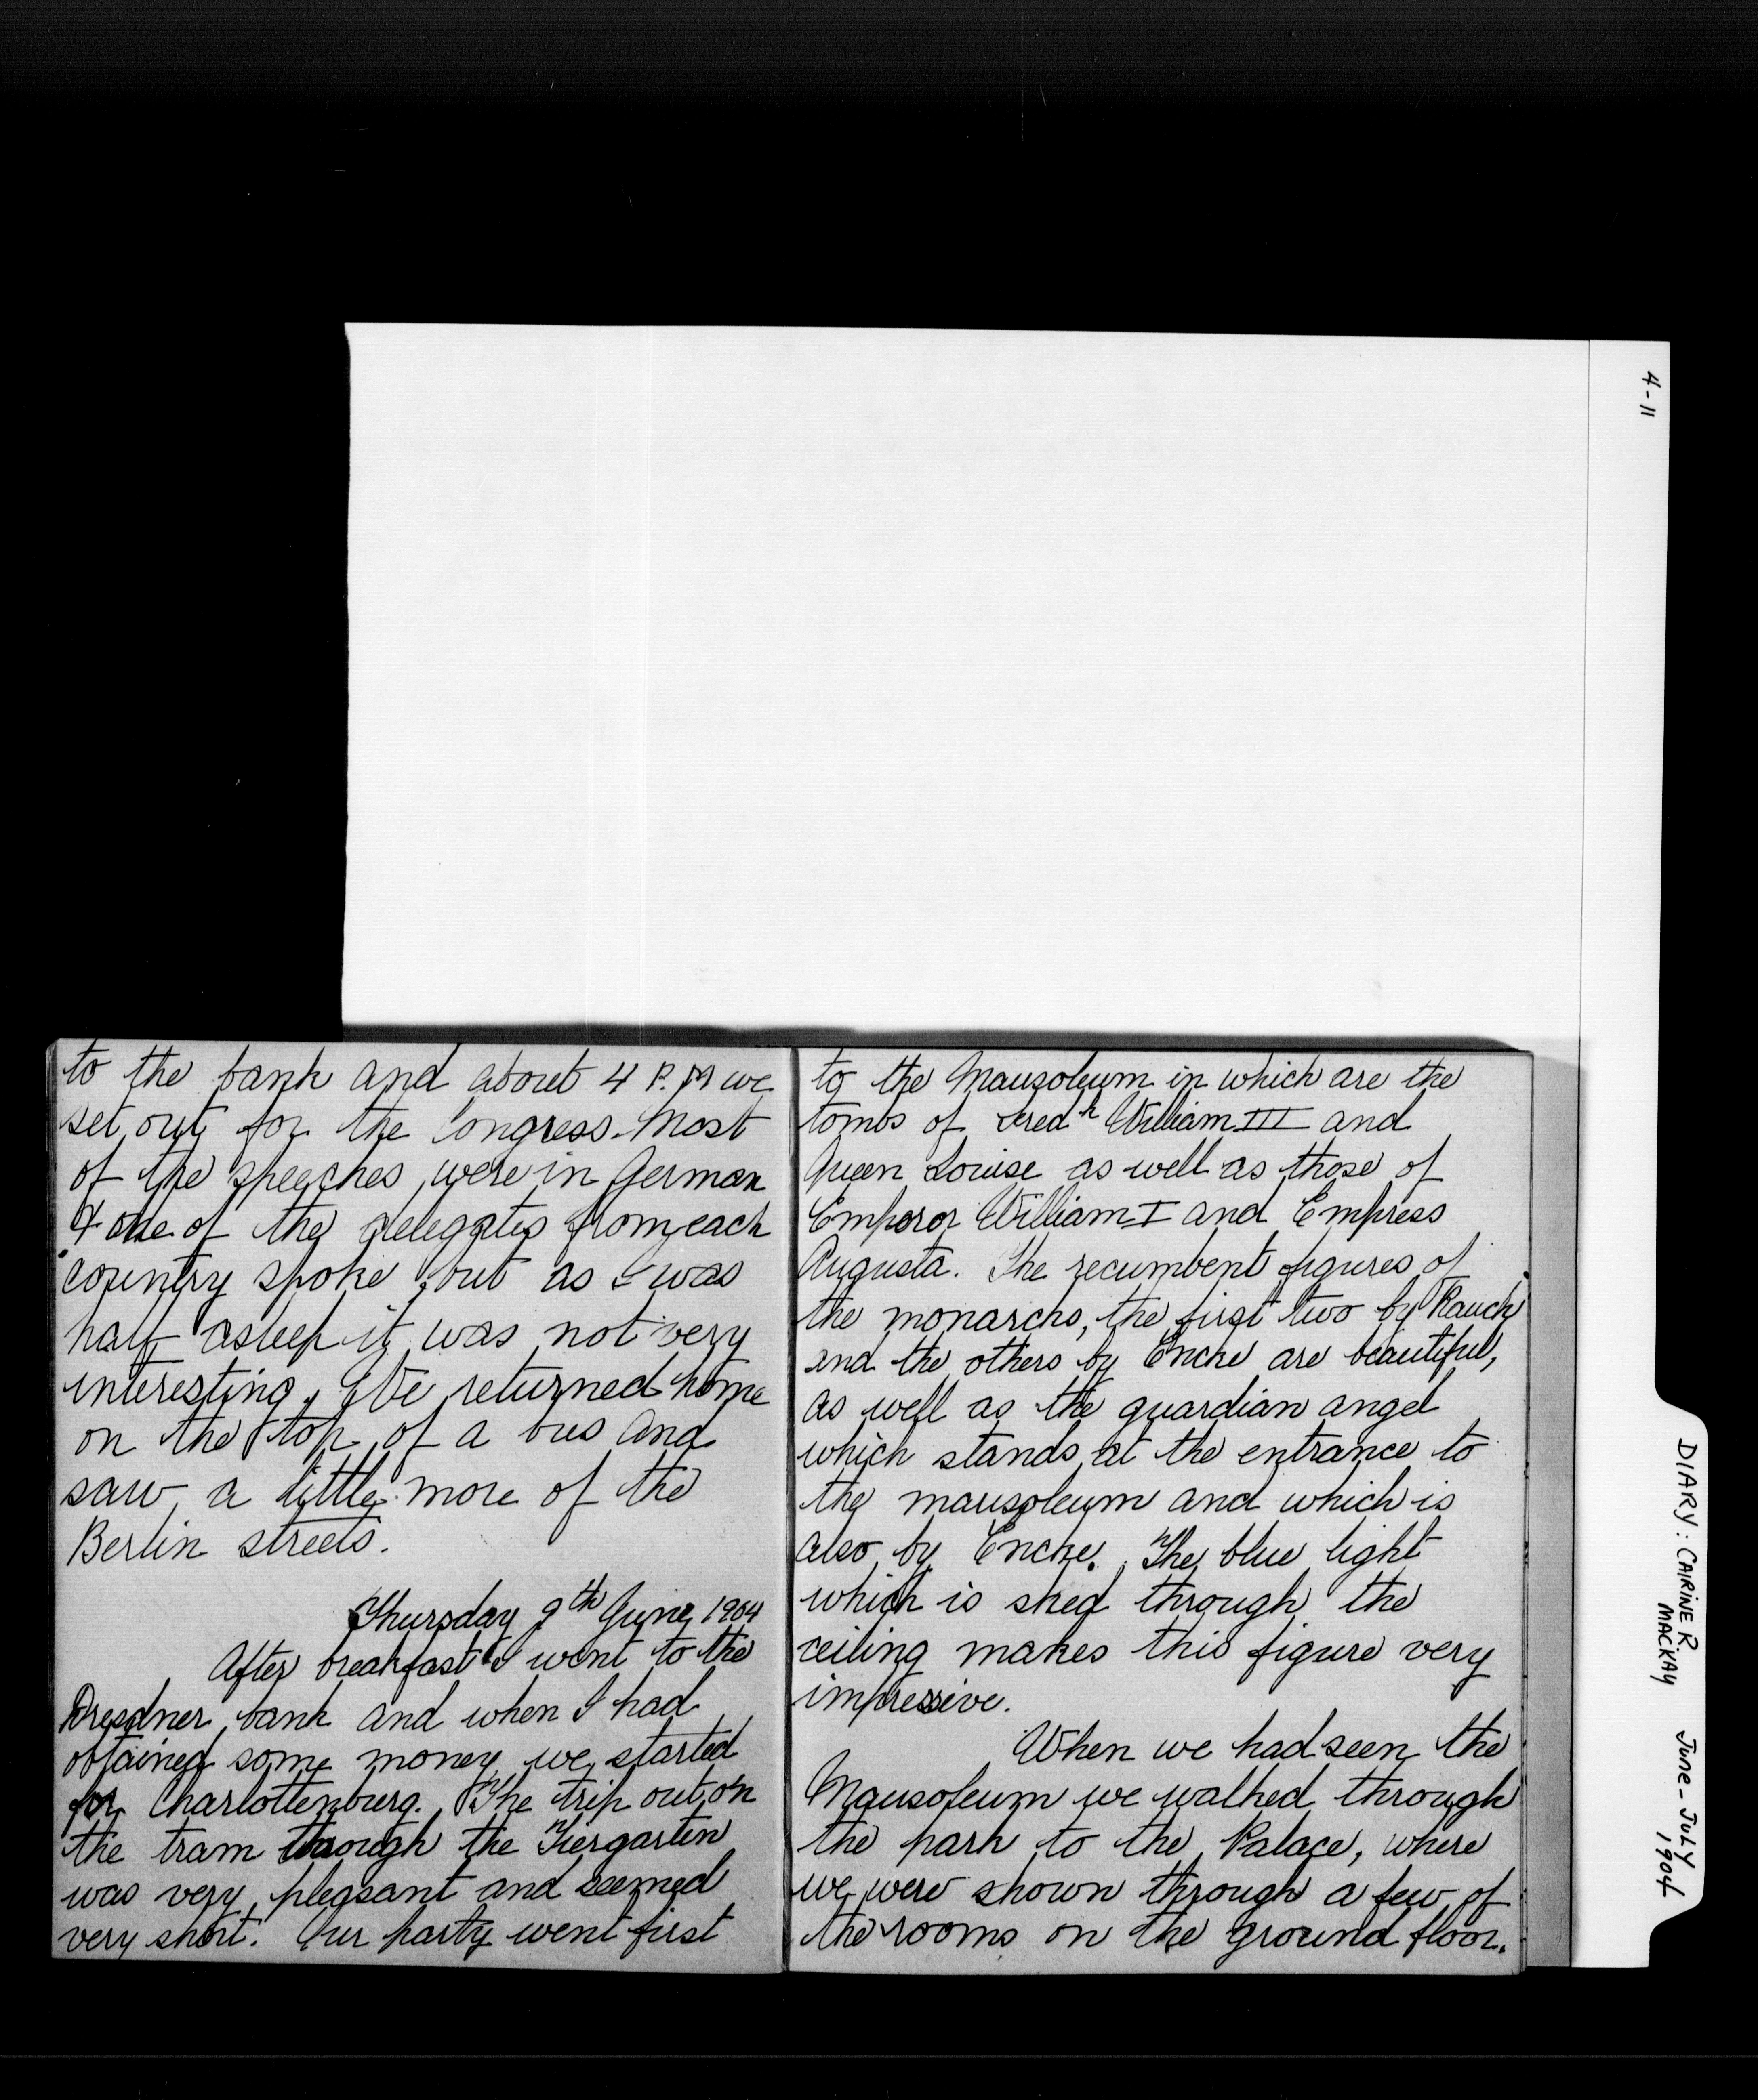 to the bank and about 4 P.M we
set out for the Congress. Most
of the speeches were in German
& one of the delegates from each
country spoke, but as I was
half asleep it was not very
interesting. We returned home
on the top of a bus and
saw a little more of the
Berlin streets.
Thursday 9th June, 1904
After breakfast I went to the
Dresdner bank and when I had
obtained some money we started
for Charlottenburg. The trip out on
the tram through the Tiergarten
was very pleasant and seemed
very short. Our party went first
to the Mausoleum in which are the
tombs of Fredk William III and
Queen Louise as well as those of
Emperor William I and Empress
Augusta. The recumbent figures of
the monarchs, the first two by Rauch
and the others by Encke are beautiful,
as well as the guardian angel
which stands at the entrance to
the mausoleum and which is
also by Encke. The blue light
which is shed through the
ceiling makes this figure very
impressive.
When we had seen the
Mausoleum we walked through
the park to the Palace, where
we were shown through a few of
the rooms on the ground floor.
4-11
DIARY: CAIRINE R MACKAY
June - July 1904